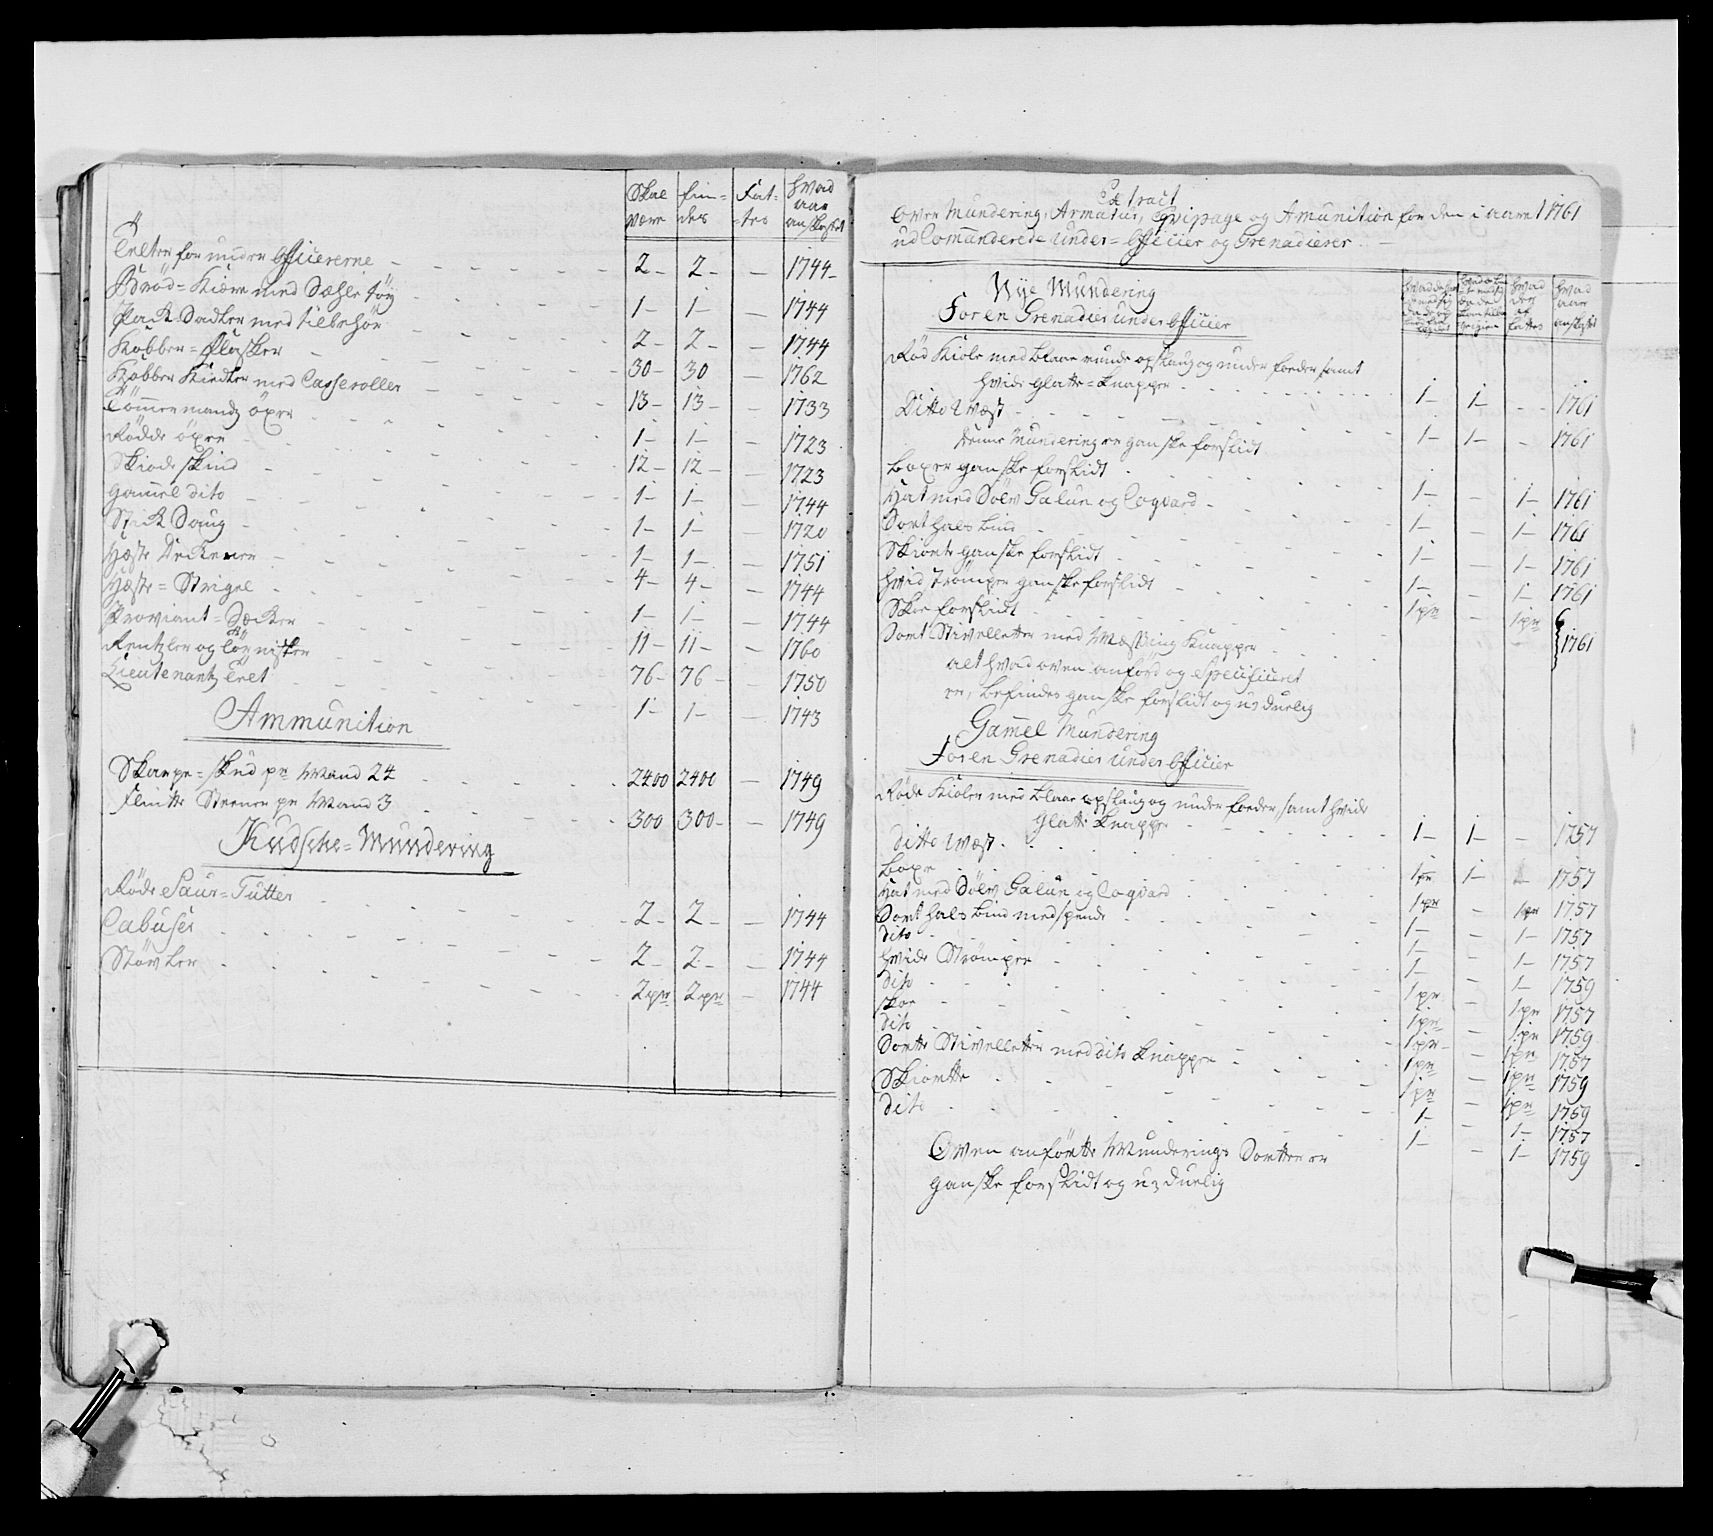 Skal være | fin=des | Fat=tes | hvad aar anskaffet
Telter for under Officiererne 2 2 — 1744
Brød=Kiære med Sæhle tøy 1 1 — 1744
Pack Sadler med tilbehør 2 2 — 1744
Kobber=Flasker 30 30 — 1762
Kobber Kiedler med Casseroller 13 13 — 1733
Tömmermandz öxer 1 1 — 1723
Rödde öxer 12 12 — 1723
Skiøde skind 1 1 — 1744
Gamel dito 1 1 — 1720
Stæk Saug 1 1 — 1751
Hæste Deckener 4 4 — 1744
Hæste=Strigel 1 1 — 1744
Proviant=Sæcker 11 11 — 1760
Rentzler og Törnister 76 76 — 1750
Lieutenantz Telt 1 1 — 1743
Ammunition
Skarpe=skud pr Mand 24 2400 2400 — 1749
Flintte Steener pr Mand 3 300 300 — 1749
Kudske=Mundering
Røde Saur=Tutter 2 2 — 1744
Cabuser 2 2 — 1744
Støvler 2 pr 2 pr — 1744
Extract
Over Mundering, Armatur, Eqvipage og Amunition for den i aaret 1761
udComanderede Under=Officier og Grenadierer
hvad aar anskaffet
Nye Mundering
For en Grenadier under Officier
Rød Kiole med blaae runde opslaug og under foeder samt
hvide glatte=Knapper 1 1 — 1761
Ditto Væst 1 1 — 1761
denne Mundering er ganske forslidt
Boxer ganske forslidt 1 — 1 1761
Hat med Sölv Galun og Coqvard 1 — 1 1761
Sort hals bind 1 — 1 1761
Skiorte ganske forslidt 1 — 1 1761
Hvid strömper ganske forslidt 1 pr — 1 pr
Skoe forslidt 1761
Sort Stivelletter med Messing Knapper
alt hvad oven anførd og Specificeret
er, befindes ganske forslidt og uduelig
Gamel Mundering
For en Grenadier under Officier
Røde Kioler med blaae opslaug og under foeder, samt hvide
Glatte Knapper 1 1 — 1757
ditto Væst 1 1 — 1757
Boxer 1 pr — 1 pr 1757
Hat med Sölv Galun og Coqvard 1 — 1 1757
Sort hals bind med spende 1 — 1 1757
dito 1 — 1 1759
Hvide Strömper 1 pr — 1 pr 1757
dito 1 pr — 1 pr 1759
Skoe 1 pr — 1 pr 1757
dito 1 pr — 1 pr 1759
Sortte Stivelletter med dito Knapper 1 pr — 1 pr 1759
Skiortte 1 — 1 1757
dito 1 — 1 1759
Oven anførtte Munderings Sortter er
ganske forslidt og uduelig